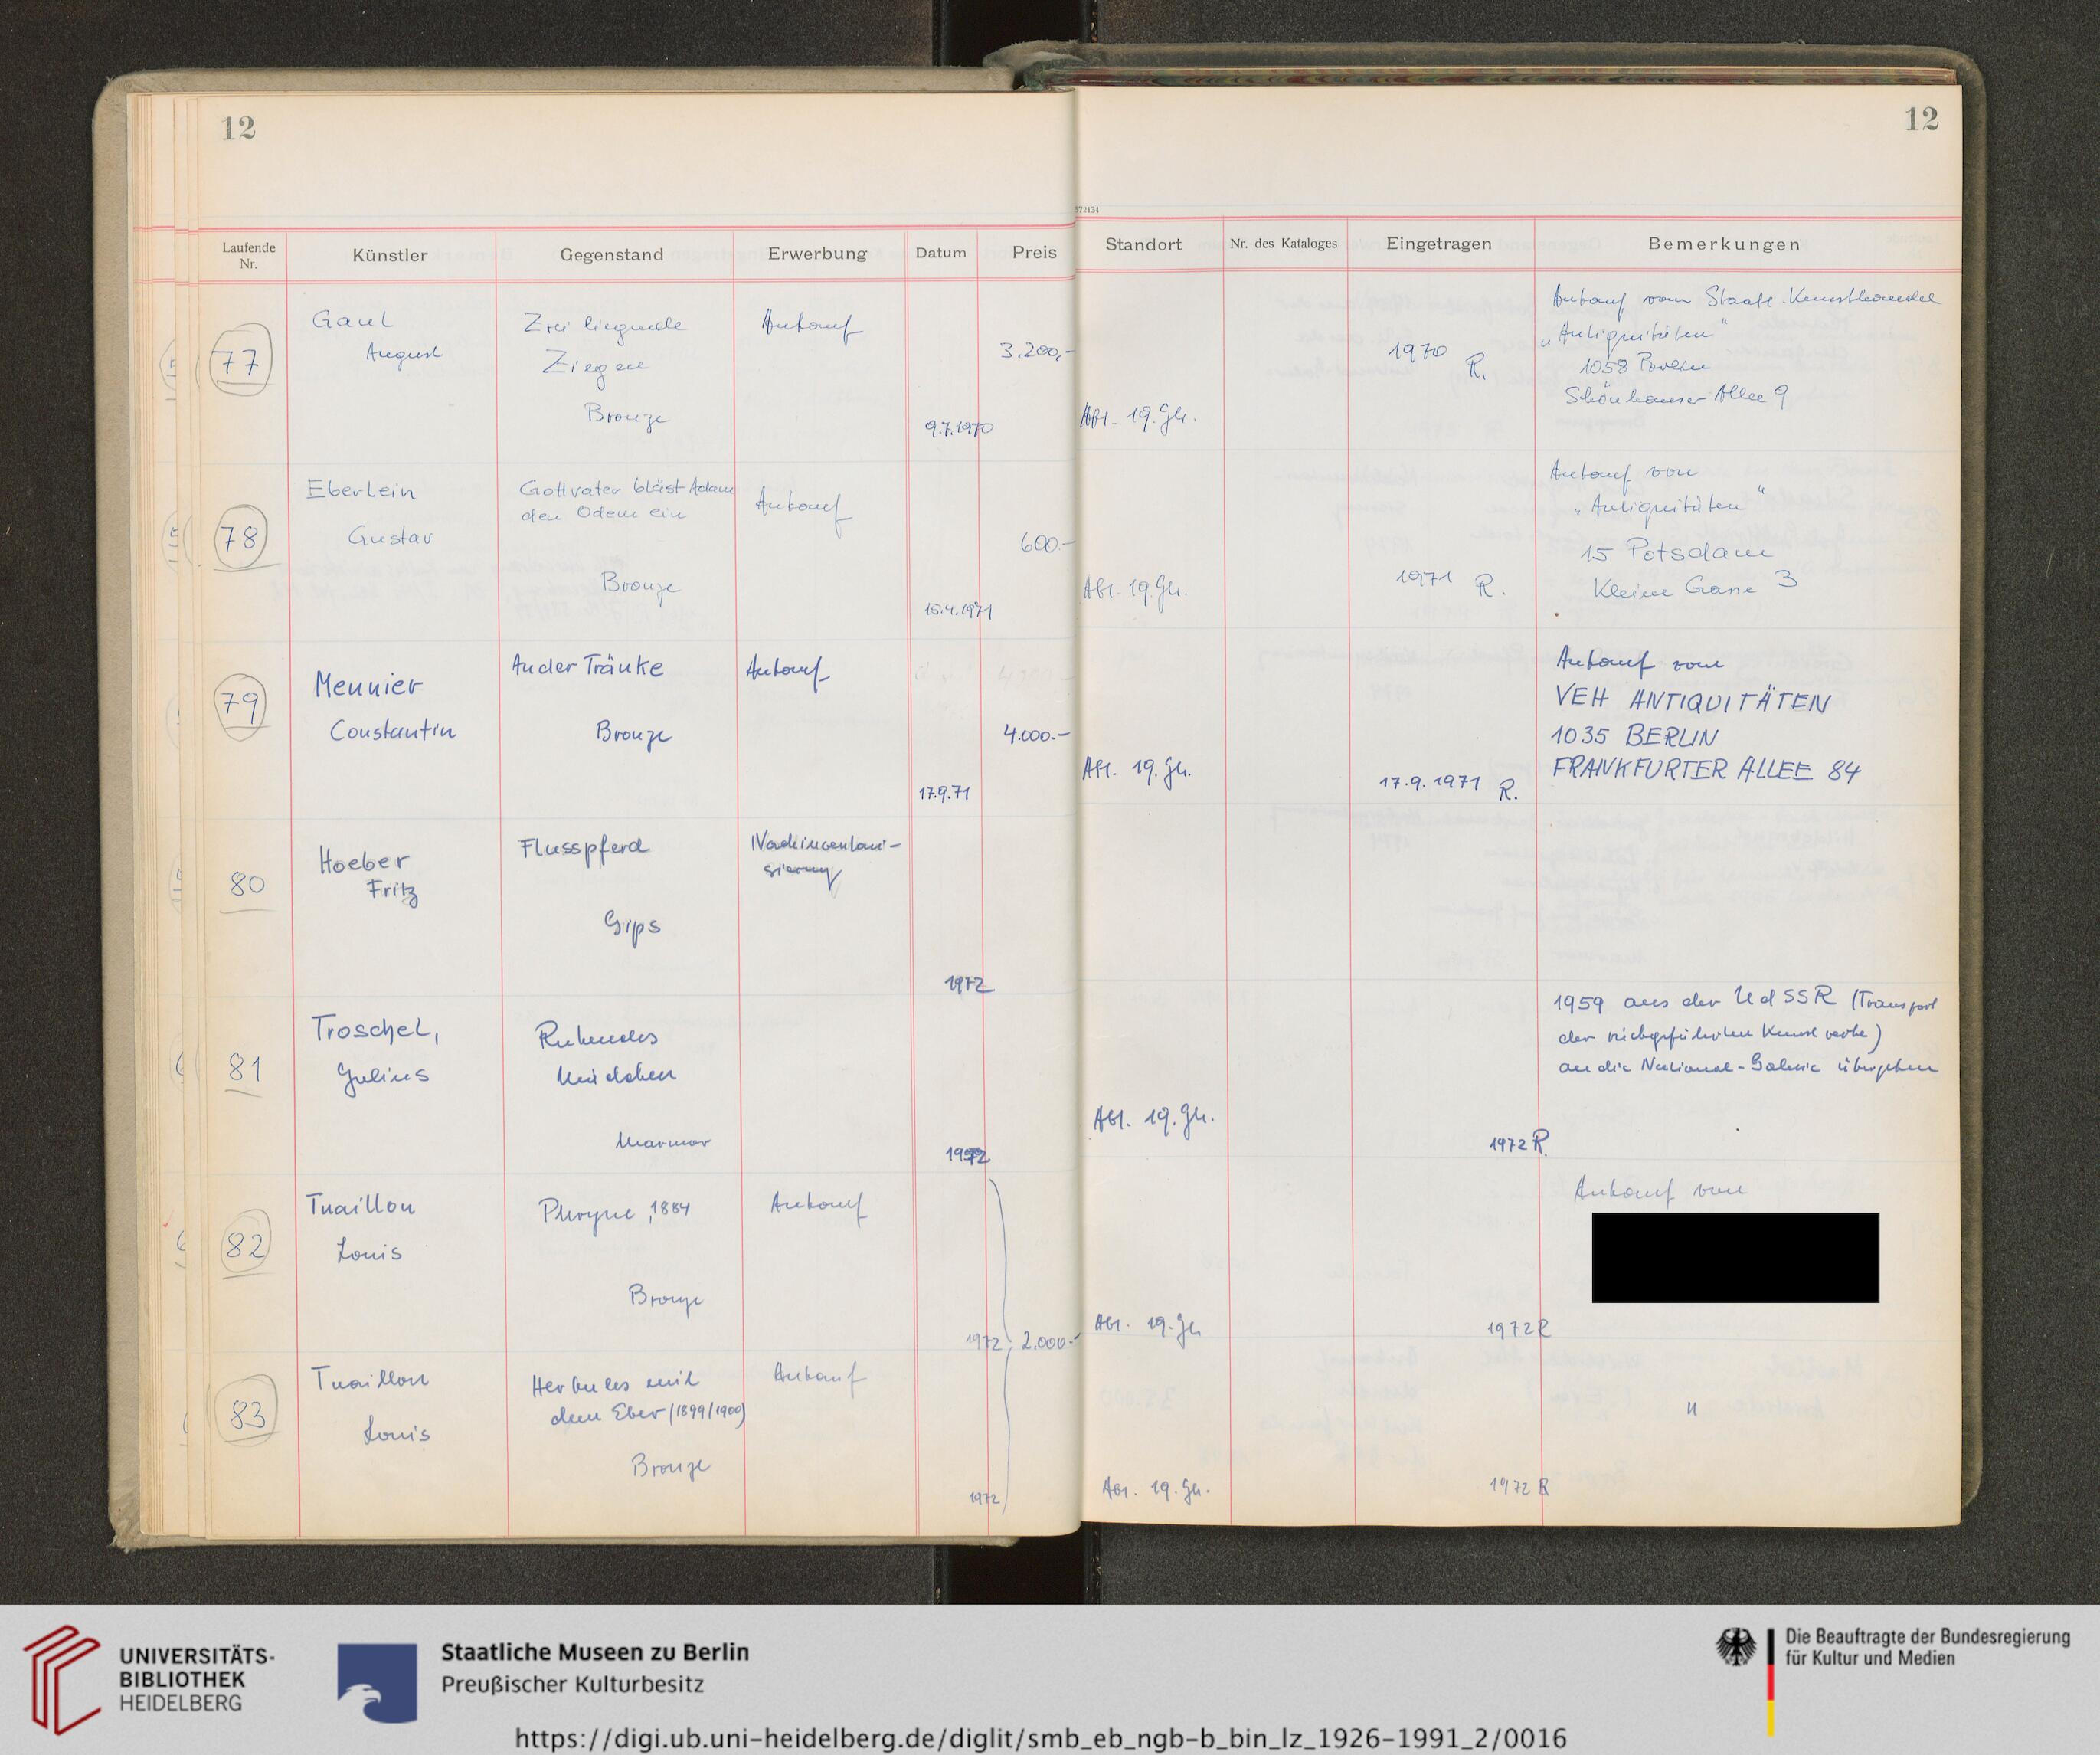 12
12
572134
Laufende Nr.
Künstler
Gegenstand
Erwerbung
Datum
Preis
Standort
Nr. des Kataloges
Eingetragen
Bemerkungen
77
Gaul
August
Zwei liegende
Ziegen
Bronze
Ankauf
9.7.1970
3.200,-
Abt. 19. Jh.
1970
R.
Ankauf vom Staatl. Kunsthandel
„Antiquitäten"
1058 Berlin
Schönhauser Allee 9
78
Eberlein
Gustav
Gottvater bläst Adam
den Odem ein
Bronze
Ankauf
15.4.1971
600.-
Abt. 19. Jh.
1971 R.
Ankauf von
„Antiquitäten"
15 Potsdam
Kleine Gasse 3
79
Meunier
Constantin
An der Tränke
Bronze
Ankauf
17.9.71
4.000.-
Abt. 19. Jh.
17.9.1971 R.
Ankauf vom
VEH ANTIQUITÄTEN
1035 BERLIN
FRANKFURTER ALLEE 84
80
Hoeber
Fritz
Flusspferd
Gips
Nachinventari-
sierung
1972
81
Troschel,
Julius
Ruhendes
Mädchen
Marmor
1972
Abt. 19. Jh.
1972 R.
1959 aus der UdSSR (Transport
der rückgeführten Kunstwerke)
an die National-Galerie übergeben
82
Tuaillon
Louis
Phryne, 1884
Bronze
Ankauf
1972
2.000.-
Abt. 19. Jh.
1972 R
Ankauf von
83
Tuaillon
Louis
Herkules mit
dem Eber (1899/1900)
Bronze
Ankauf
1972
Abt. 19. Jh.
1972 R
"
UNIVERSITÄTS-
BIBLIOTHEK
HEIDELBERG
Staatliche Museen zu Berlin
Preußischer Kulturbesitz
Die Beauftragte der Bundesregierung
für Kultur und Medien
https://digi.ub.uni-heidelberg.de/diglit/smb_eb_ngb-b_bin_lz_1926-1991_2/0016